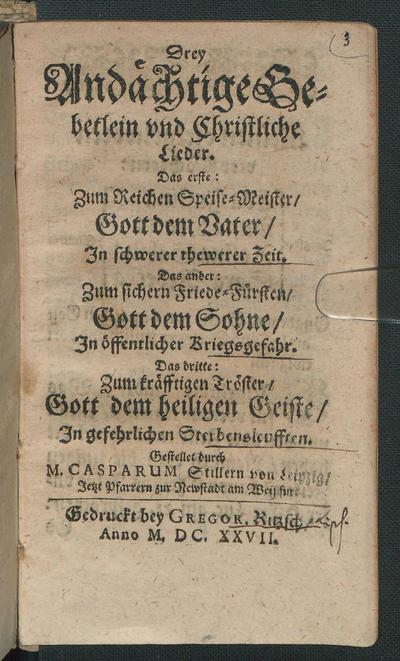 3
Drey
Andächtige Ge-
betlein vnd Christliche
Lieder.
Das erste:
Zum Reichen Speise-Meister/
Gott dem Vater/
In schwerer thewerer Zeit.
Das ander:
Zum sichern Friede-Fürsten/
Gott dem Sohne/
In öffentlicher Kriegsgefahr.
Das dritte:
Zum kräfftigen Tröster/
Gott dem heiligen Geiste/
In gefehrlichen Sterbensleufften.
Gestellet durch
M. CASPARUM Stillern von Leipzig/
Jetzt Pfarrern zur Newstadt am
Gedruckt bey GREGOR. Ritzsch/
Anno M. DC. XXVII.